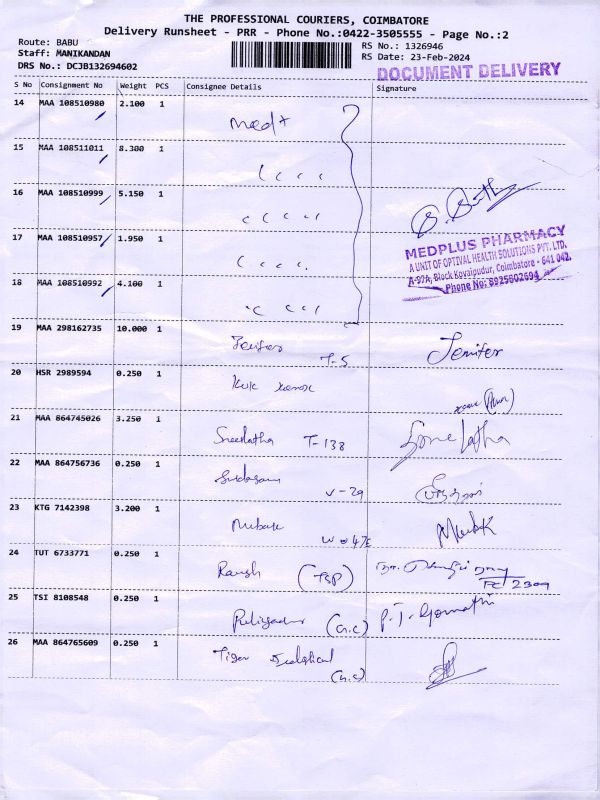 THE PROFESSIONAL COURIERS, COIMBATORE
Delivery Runsheet - PRR - Phone No.:0422-3505555 - Page No.:2
Route: BABU
Staff: MANIKANDAN
DRS No.: DCJB132694602
RS No.: 1326946
RS Date: 23-Feb-2024
DOCUMENT DELIVERY
S No Consignment No Weight PCS Consignee Details Signature
14 MAA 108510980 2.100 1 Med+
15 MAA 108511011 8.300 1
16 MAA 108510999 5.150 1
17 MAA 108510957 1.950 1
MEDPLUS PHARMACY
A UNIT OF OPTIVAL HEALTH SOLUTIONS PVT. LTD.
A-97A, Block Kovaipudur, Coimbatore - 641 042.
Phone No: 8925602694
18 MAA 108510992 4.100 1
19 MAA 298162735 10.000 1 Jenifer T-5 Jenifer
20 HSR 2989594 0.250 1
21 MAA 864745026 3.250 1 Sreelatha T-138
22 MAA 864756736 0.250 1 V-29
23 KTG 7142398 3.200 1
24 TUT 6733771 0.250 1 Ramesh PC 2309
25 TSI 8108548 0.250 1 (G.C) P.J. Gomathi
26 MAA 864765609 0.250 1 Tiger (G.C)